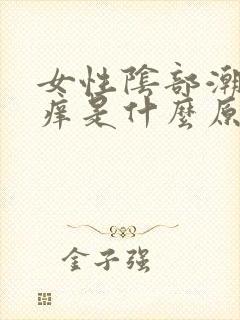 女性陰部潮
痒是什麼原
金子强